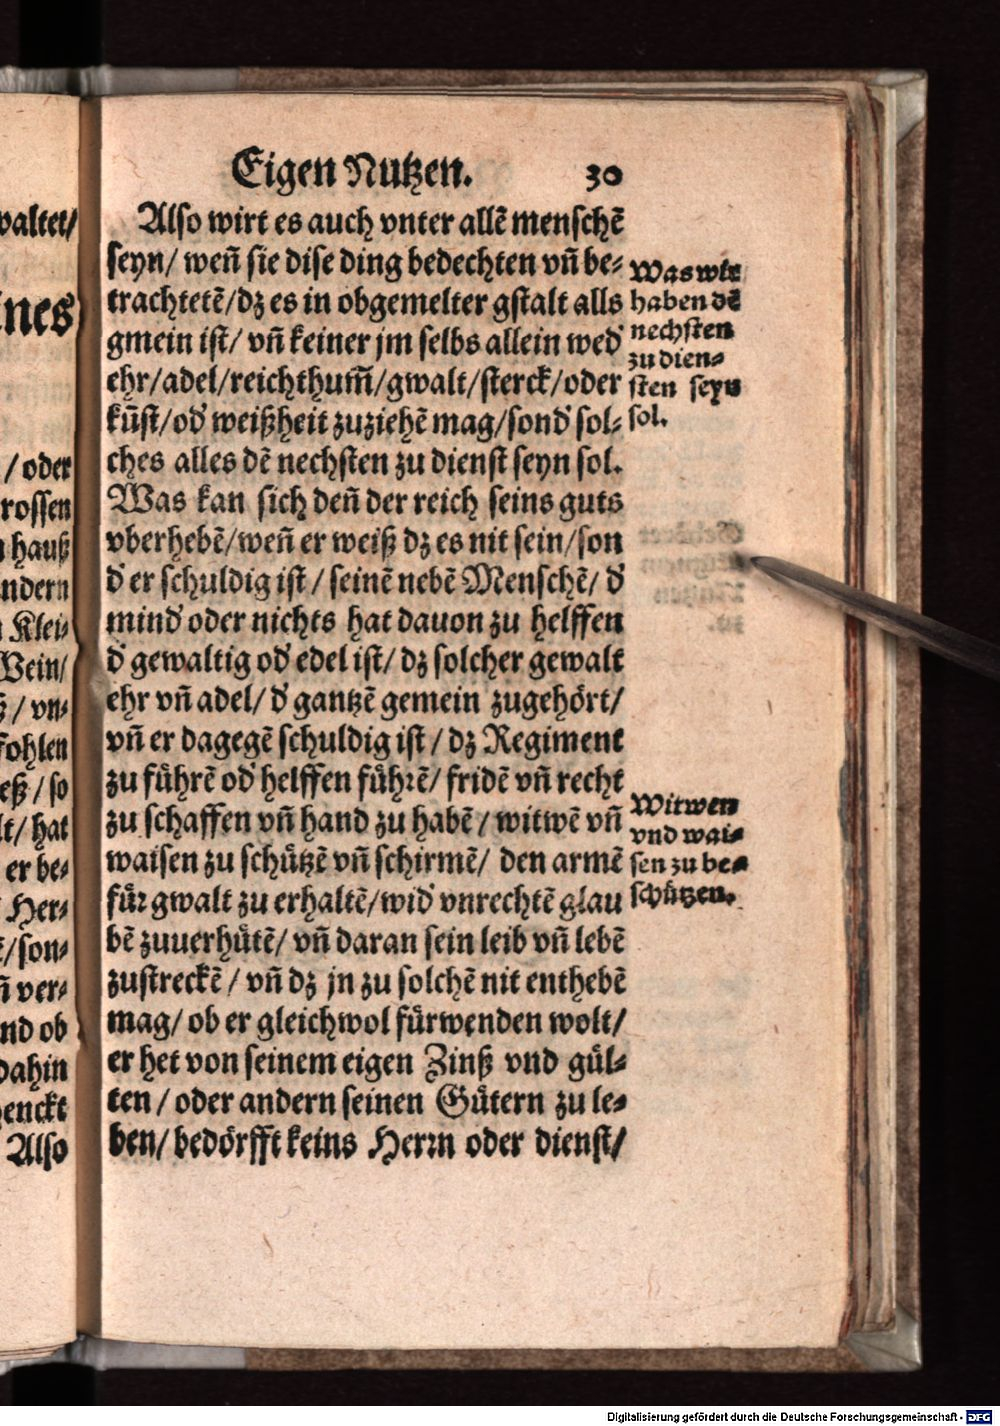 Eigen Nutzen. 30
Also wirt es auch vnter allē menschē
seyn/ weñ sie dise ding bedechten vñ be-
trachtetē/dz es in obgemelter gstalt alls
gmein ist/ vñ keiner jm selbs allein wed'
ehr/adel/reichthum̄/gwalt/sterck/oder
kūst/od' weißheit zuziehē mag/sond' sol-
ches alles dē nechsten zu dienst seyn sol.
Was kan sich deñ der reich seins guts
vberhebē/weñ er weiß dz es nit sein/son
d' er schuldig ist / seinē nebē Menschē/ d'
mind' oder nichts hat dauon zu helffen
d' gewaltig od' edel ist/ dz solcher gewalt
ehr vñ adel/ d' gantzē gemein zugehört/
vñ er dagegē schuldig ist / dz Regiment
zu führē od' helffen führē/ fridē vñ recht
zu schaffen vñ hand zu habē / witwē vñ
waisen zu schützē vñ schirmē/ den armē
für gwalt zu erhaltē/wid' vnrechtē glau
bē zuuerhütē/ vñ daran sein leib vñ lebē
zustreckē / vñ dz jn zu solchē nit enthebē
mag/ ob er gleichwol fürwenden wolt/
er het von seinem eigen Zinß vnd gül-
ten / oder andern seinen Gütern zu le-
ben/ bedörfft keins Herrn oder dienst/
Was wir
haben dē
nechsten
zu dien-
sten seyn
sol.
Witwen
vnd wai-
sen zu be-
schützen.
waltet/
ines
/ oder
rossen
hauß
ndern
Klei-
Wein/
/ vn-
fohlen
/ so
lt/ hat
er be-
Her-
/son-
ñ ver-
nd ob
dahin
henckt
Also
Digitalisierung gefördert durch die Deutsche Forschungsgemeinschaft - DFG